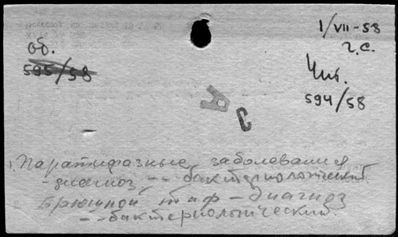 1/VII-58
г.с.
об.
595/58
Чит.
594/58
Я
С
Паратифазные заболевания
-диагноз -- бактериологический
Брюшной тиф - диагноз
-- бактериологический